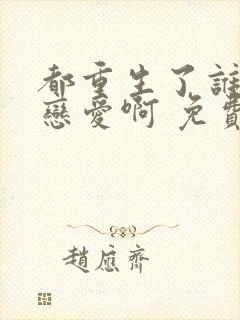 都重生了誰
戀愛啊 免費
趙應齊